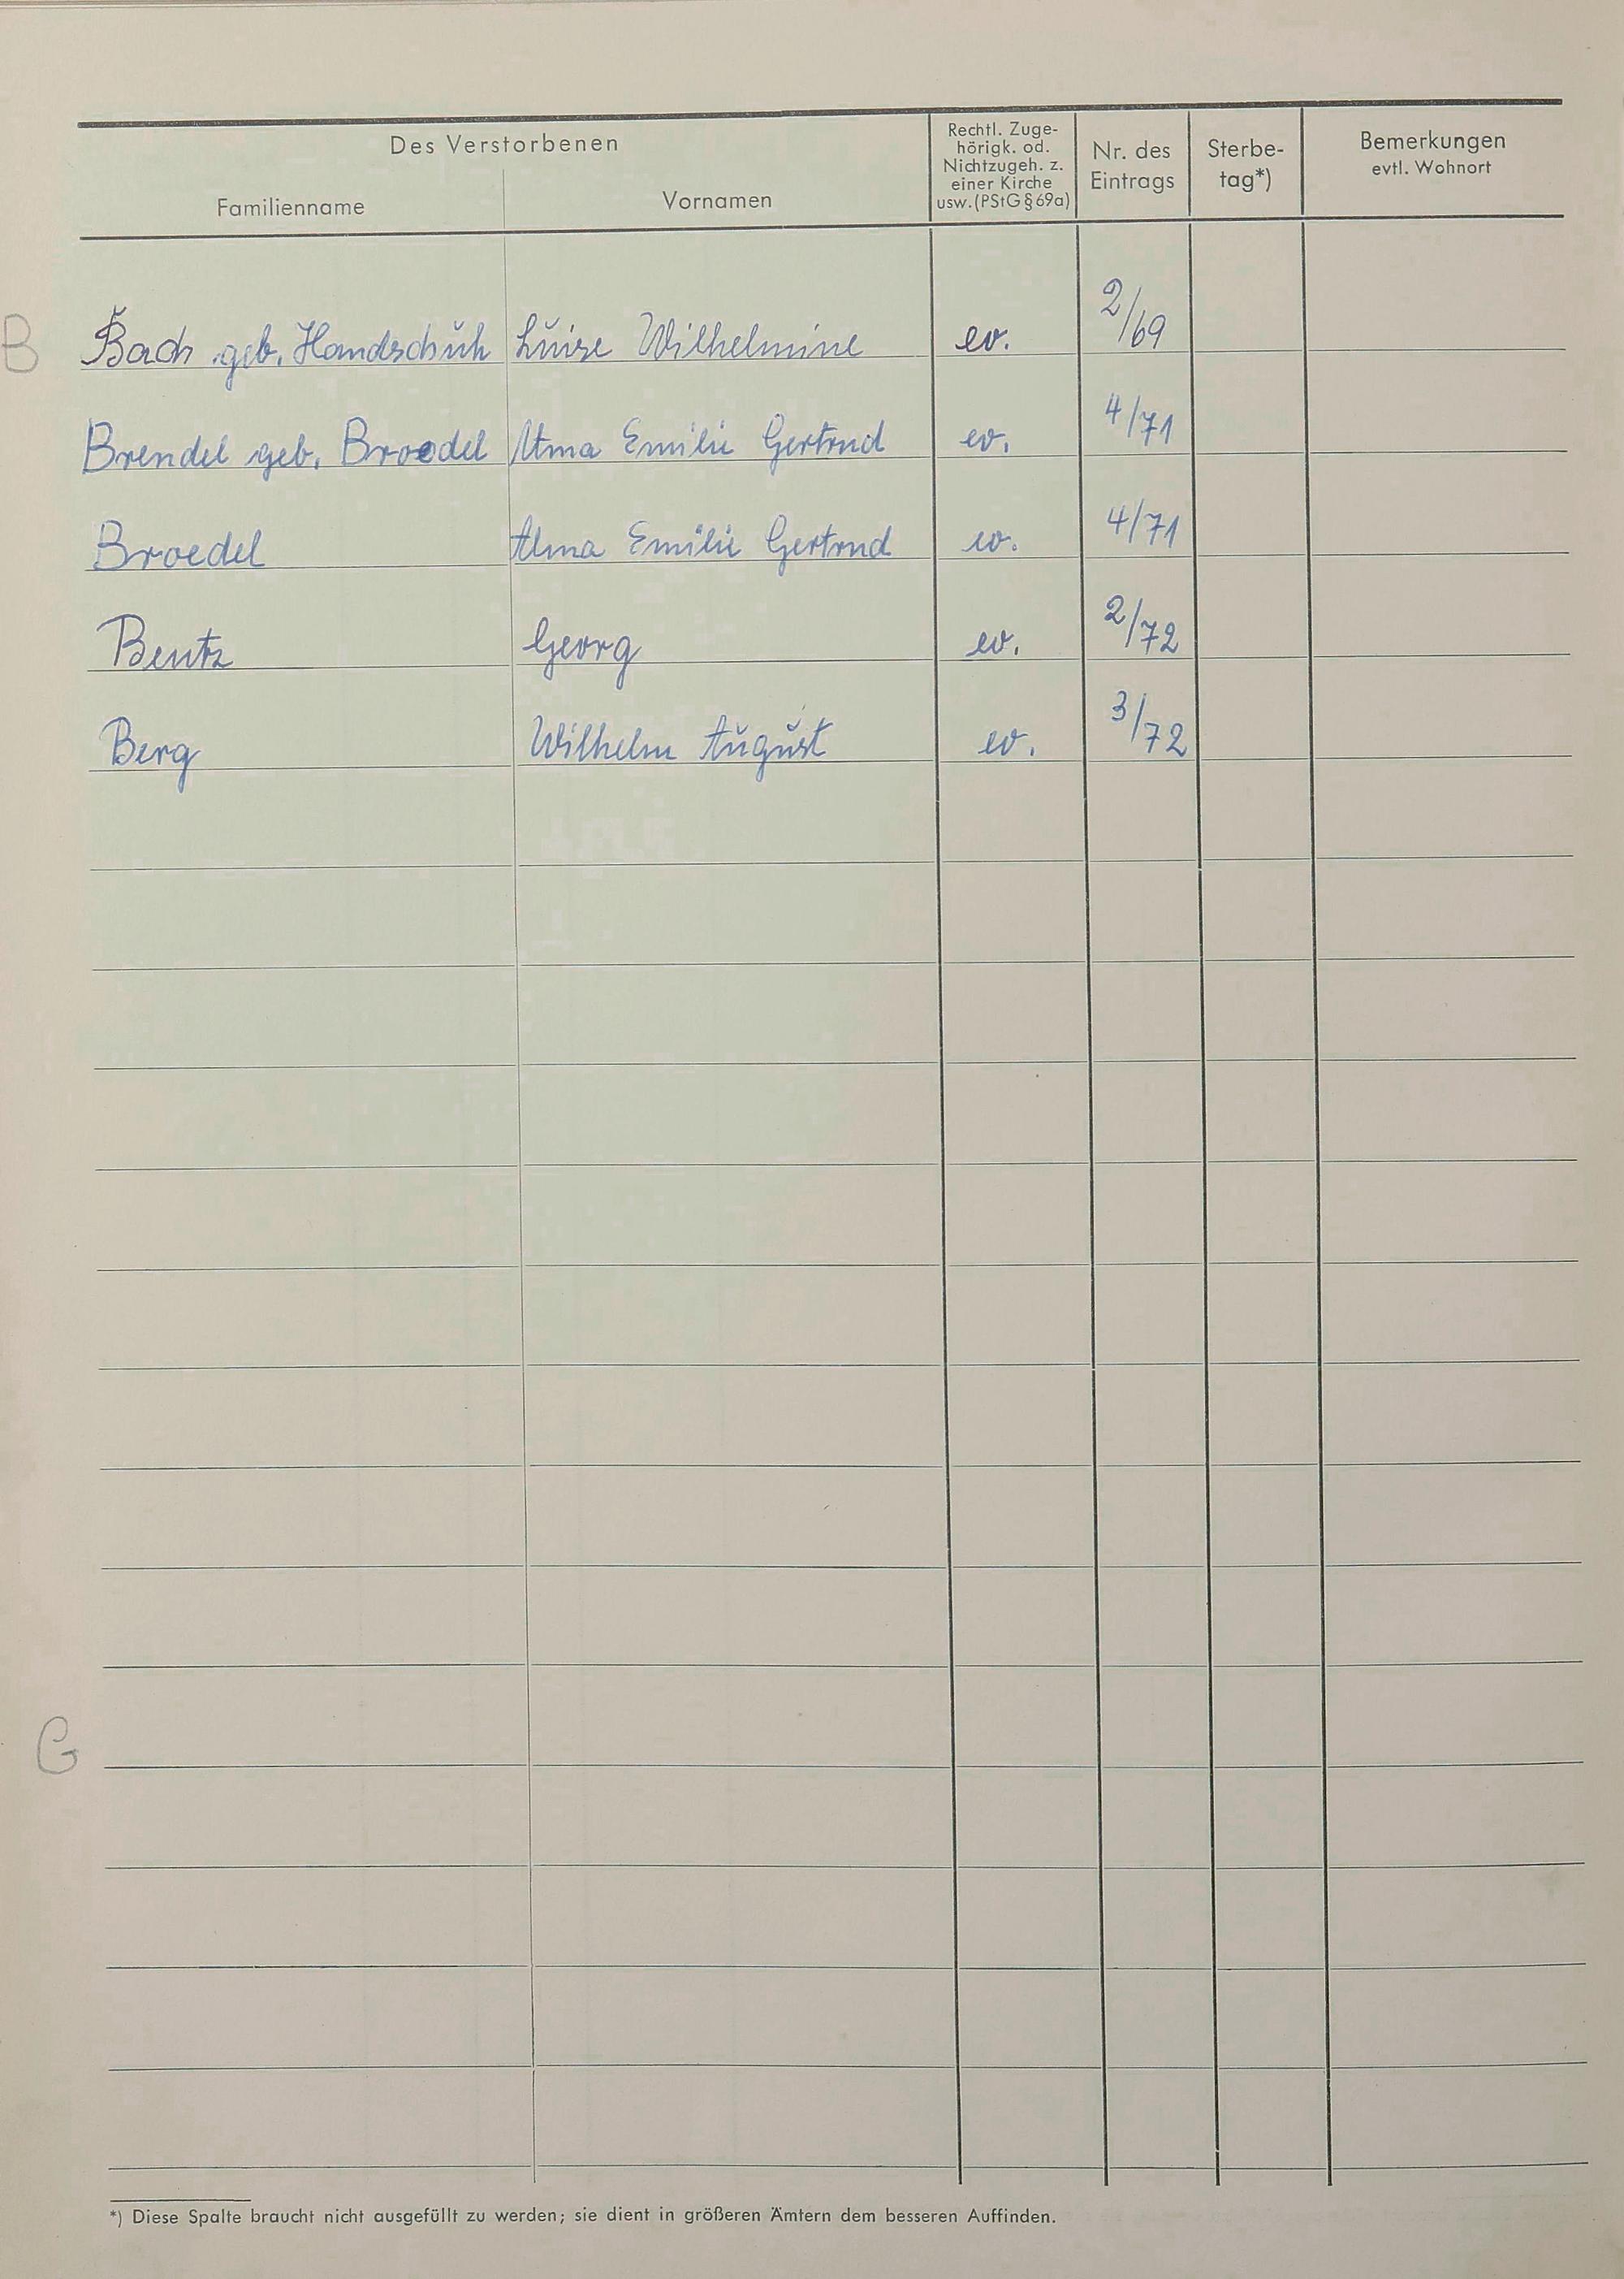 Des Verstorbenen
Familienname
Vornamen
Rechtl. Zuge-
hörigk. od.
Nichtzugeh. z.
einer Kirche
usw. (PStG § 69a)
Nr. des
Eintrags
Sterbe-
tag*)
Bemerkungen
evtl. Wohnort
B
Bach geb. Handschuh Luise Wilhelmine ev. 2/69
Brendel geb. Broedel Alma Emilie Gertrud ev. 4/71
Broedel Alma Emilie Gertrud ev. 4/71
Bentz Georg ev. 2/72
Berg Wilhelm August ev. 3/72
*) Diese Spalte braucht nicht ausgefüllt zu werden; sie dient in größeren Ämtern dem besseren Auffinden.